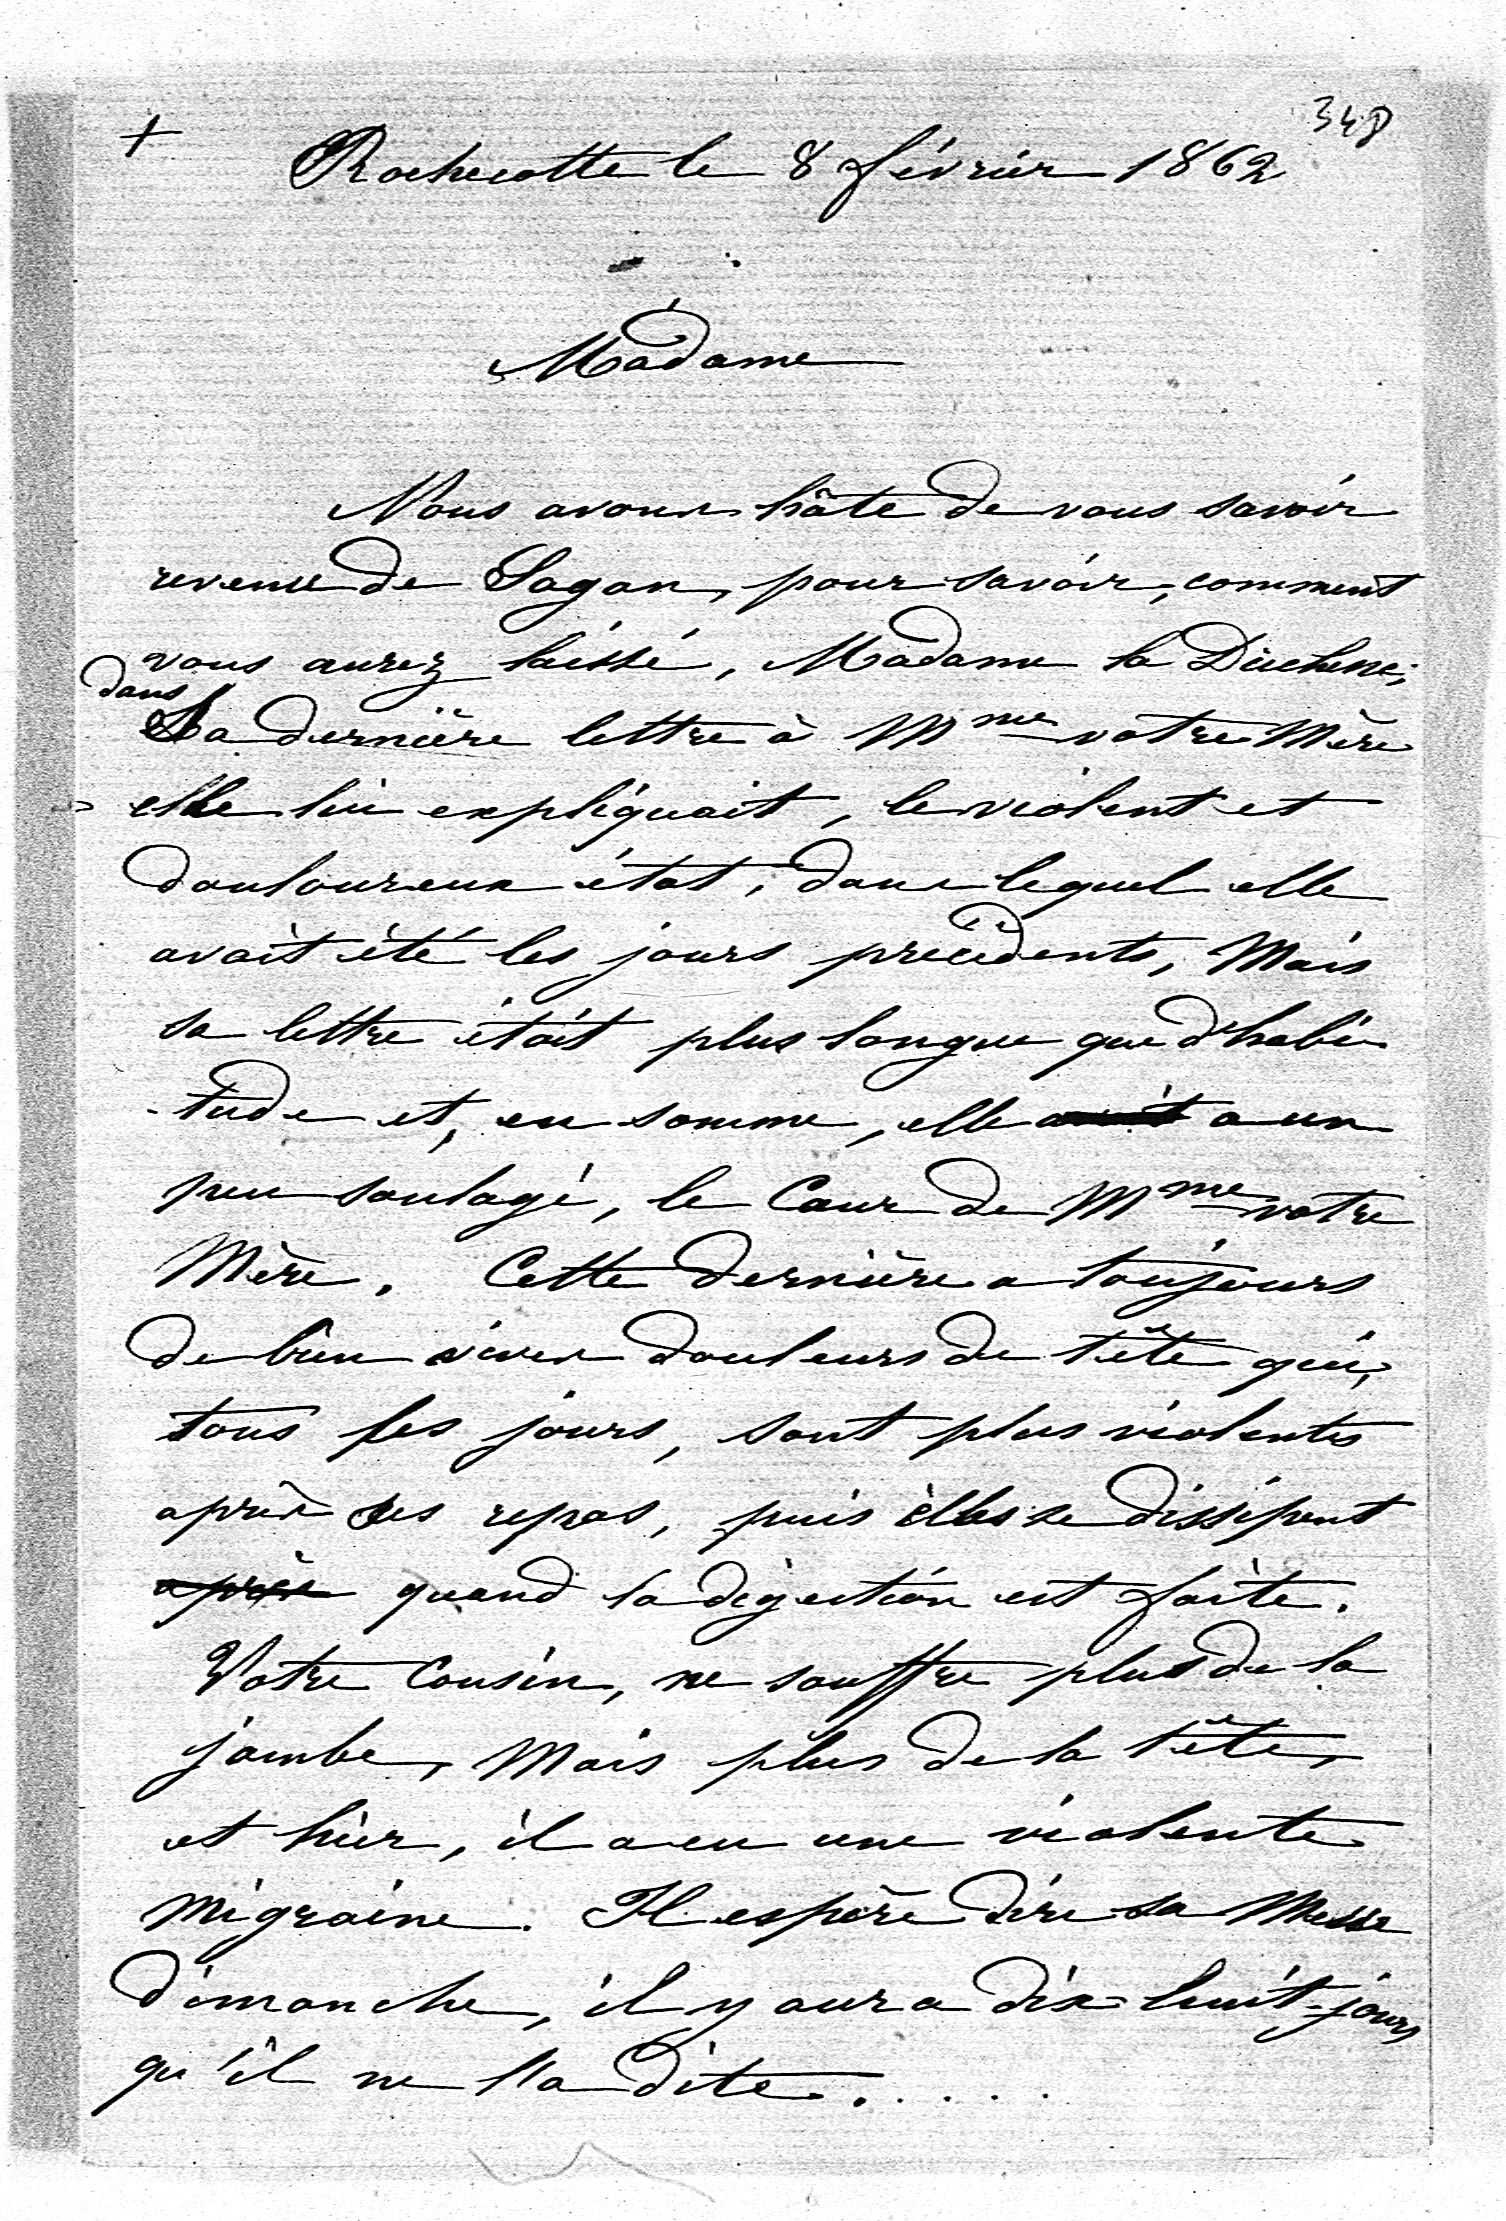 348
+
Rochecotte le 8 février 1862
Madame
Nous avons hâte de vous savoir
revenue de Sagan, pour savoir, comment
vous aurez laissé, Madame la Duchesse;
dans
Sa dernière lettre à Mme votre Mère
elle lui expliquait, le violent et
douloureux état, dans lequel elle
avait été les jours precédents, Mais
sa lettre était plus longue que d'habi
-tude et, en somme, elle avait a un
peu soulagé, le Cœur de Mme votre
Mère. Cette dernière a toujours
de bien vives douleurs de tête qui,
tous les jours, sont plus violentes
après ses repas, puis elles se dissipent
après quand la digestion est faite.
Votre Cousin, ne souffre plus de la
jambe, Mais plus de la tête,
et hier, il a eu une violente
Migraine. Il espère dire sa Messe
dimanche, il y aura dix huit-jours
qu'il ne l'a dite. . . . . .